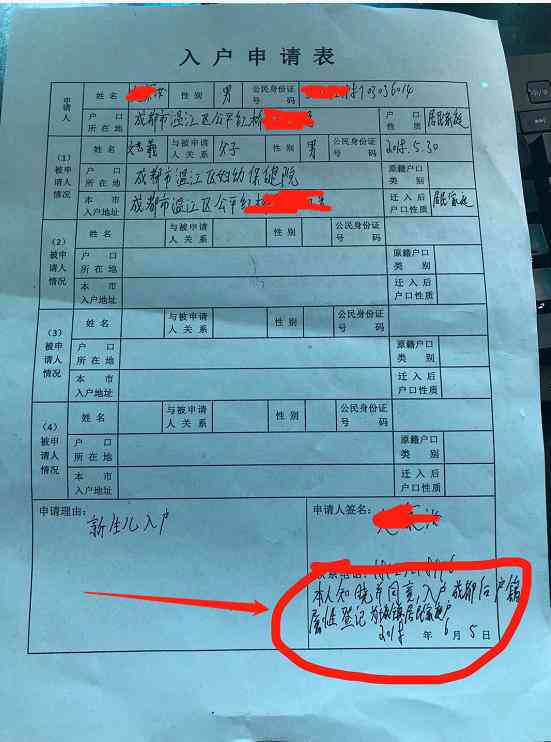 入户申请表
申请人 姓名 性别 男 公民身份证号码 03036014
户口所在地 成都市温江区公平红桥 户口性质 居民家庭
(1)被申请人情况 姓名 与被申请人关系 父子 性别 男 公民身份证号码 2018.5.30
户口所在地 成都市温江区妇幼保健院 原籍户口类别
本市入户地址 成都市温江区公平红桥 迁入后户口性质 居民家庭
(2)被申请人情况 姓名 与被申请人关系 性别 公民身份证号码
户口所在地 原籍户口类别
本市入户地址 迁入后户口性质
(3)被申请人情况 姓名 与被申请人关系 性别 公民身份证号码
户口所在地 原籍户口类别
本市入户地址 迁入后户口性质
(4)被申请人情况 姓名 与被申请人关系 性别 公民身份证号码
户口所在地 原籍户口类别
本市入户地址 迁入后户口性质
申请理由:
新生儿入户
申请人签名:
联系电话:
本人知晓并同意,入户成都后户籍
属性登记为城镇居民家庭户
2018年6月5日